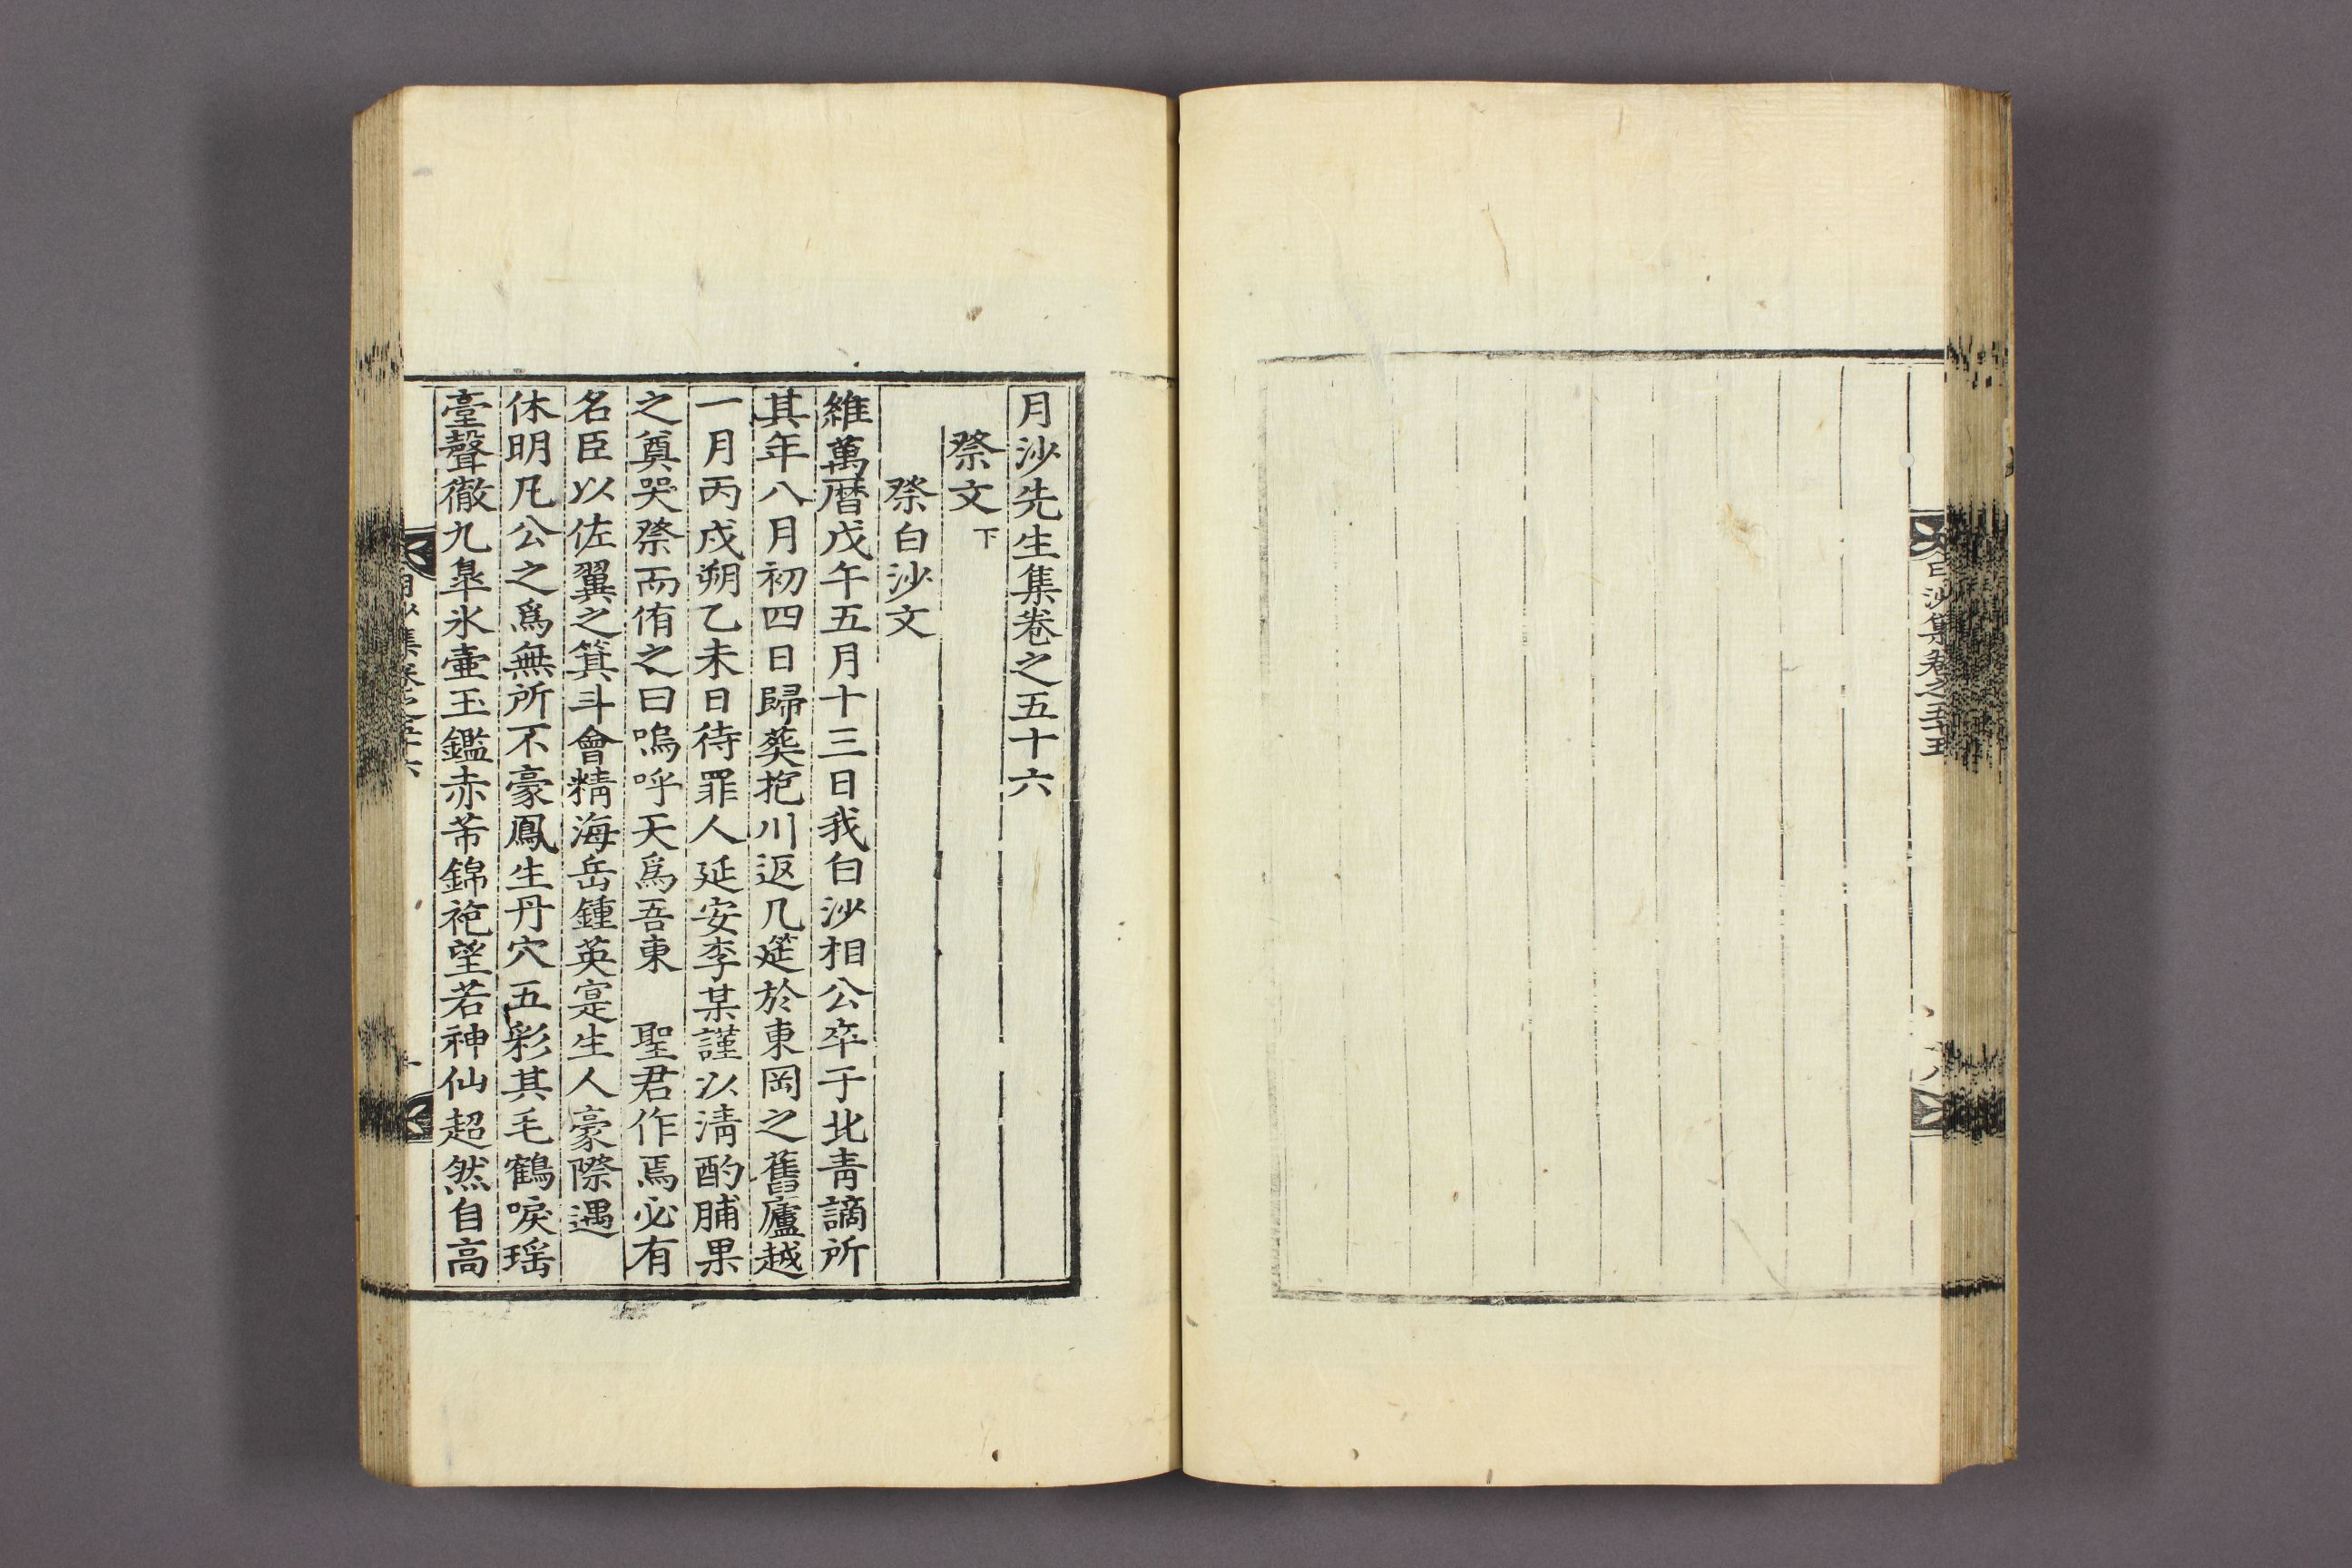 月沙集卷之五十五
八
月沙先生集卷之五十六
祭文下
祭白沙文
維萬曆戊午五月十三日我白沙相公卒于北青謫所
其年八月初四日歸葬抱川返几筵於東岡之舊廬越
一月丙戌朔乙未日待罪人延安李某謹以淸酌脯果
之奠哭祭而侑之曰嗚呼天爲吾東　聖君作焉必有
名臣以佐翼之箕斗會精海岳鍾英寔生人豪際遇
休明凡公之爲無所不豪鳳生丹穴五彩其毛鶴唳瑶
臺聲徹九臯氷壺玉鑑赤芾錦袍望若神仙超然自高
月沙集卷之五十六
一